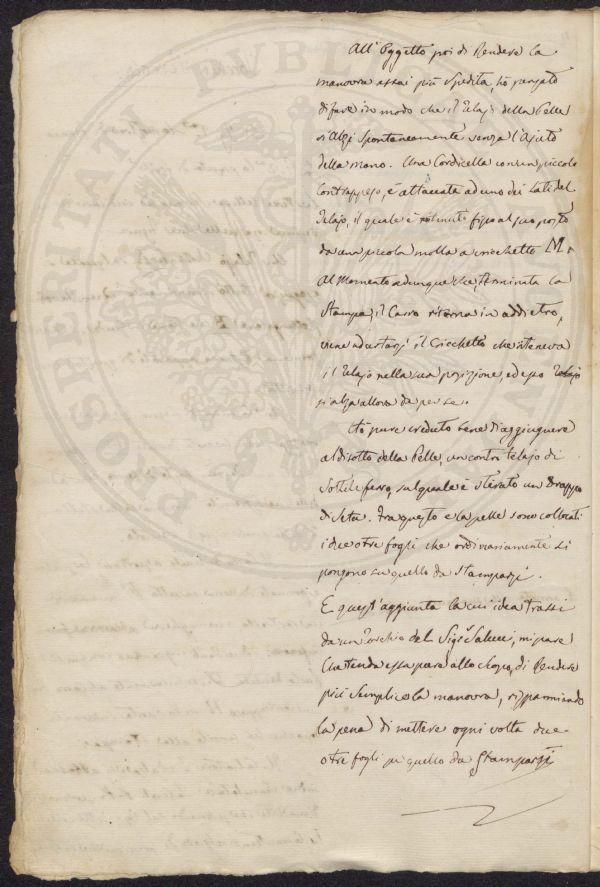 All'Oggetto poi di Rendere la
manovra assai più spedita, ho pensato
di fare in modo che il Telajo della Pelle
si Alzi spontaneamente senza l'Ajuto
della mano. Una Cordicella con un piccolo
Contrappeso, è attaccata ad uno dei Lati del
Telajo, il quale è ritenuto fisso al suo posto
da una piccola molla a cricchetto M.
Al Momento adunque che, terminata la
Stampa, il Carro ritorna in addietro,
viene ad urtarsi il Cricchetto che riteneva
il Telajo nella sua posizione, ed esso
si alza allora da per se.
Hò pure creduto bene d'aggiungere
al disotto della Pelle, un contro telajo di
Sottile ferro, sul quale è stirato un Drappo
di Seta. Tra questo e la pelle sono collocati
i due o tre fogli che ordinariamente si
pongono su quello da Stamparsi.
E quest'aggiunta la cui idea trassi
da un Torchio del Sigr.
mi pare
che tenda essa pura allo scopo, di Rendere
più Semplice la manovra, risparmiando
la pena di mettere ogni volta due
o tre fogli su quello da Stamparsi
PROSPERITATI PUBLIC